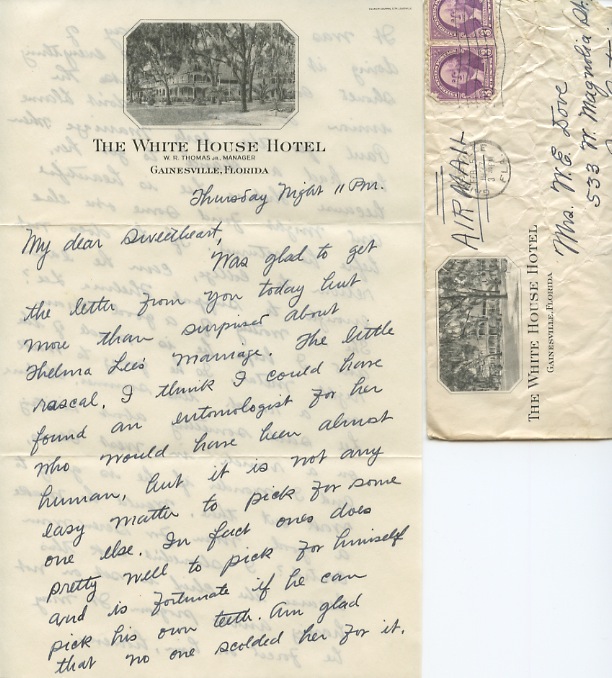 THE WHITE HOUSE HOTEL
W. R. THOMAS JR., MANAGER
GAINESVILLE, FLORIDA
Thursday Night 11 P.m.
My dear Sweetheart,
Was glad to get
the letter from you today but
more than surprised about
Thelma Lee's marriage. The little
rascal, I think I could have
found an entomologist for her
who would have been almost
human, but it is not any
easy matter to pick for some
one else. In fact ones does
pretty well to pick for himself
and is fortunate if he can
pick his own teeth. Am glad
that no one scolded her for it.
AIR MAIL
FLA
3
3
THE WHITE HOUSE HOTEL
GAINESVILLE, FLORIDA
Mrs. W. E. Dove
533 W. Magnolia